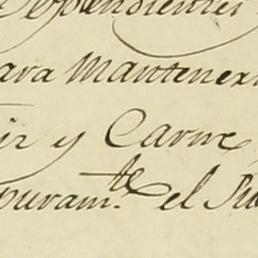 Dependientes
ara Mantener
ir y Carne
puram.te el Su